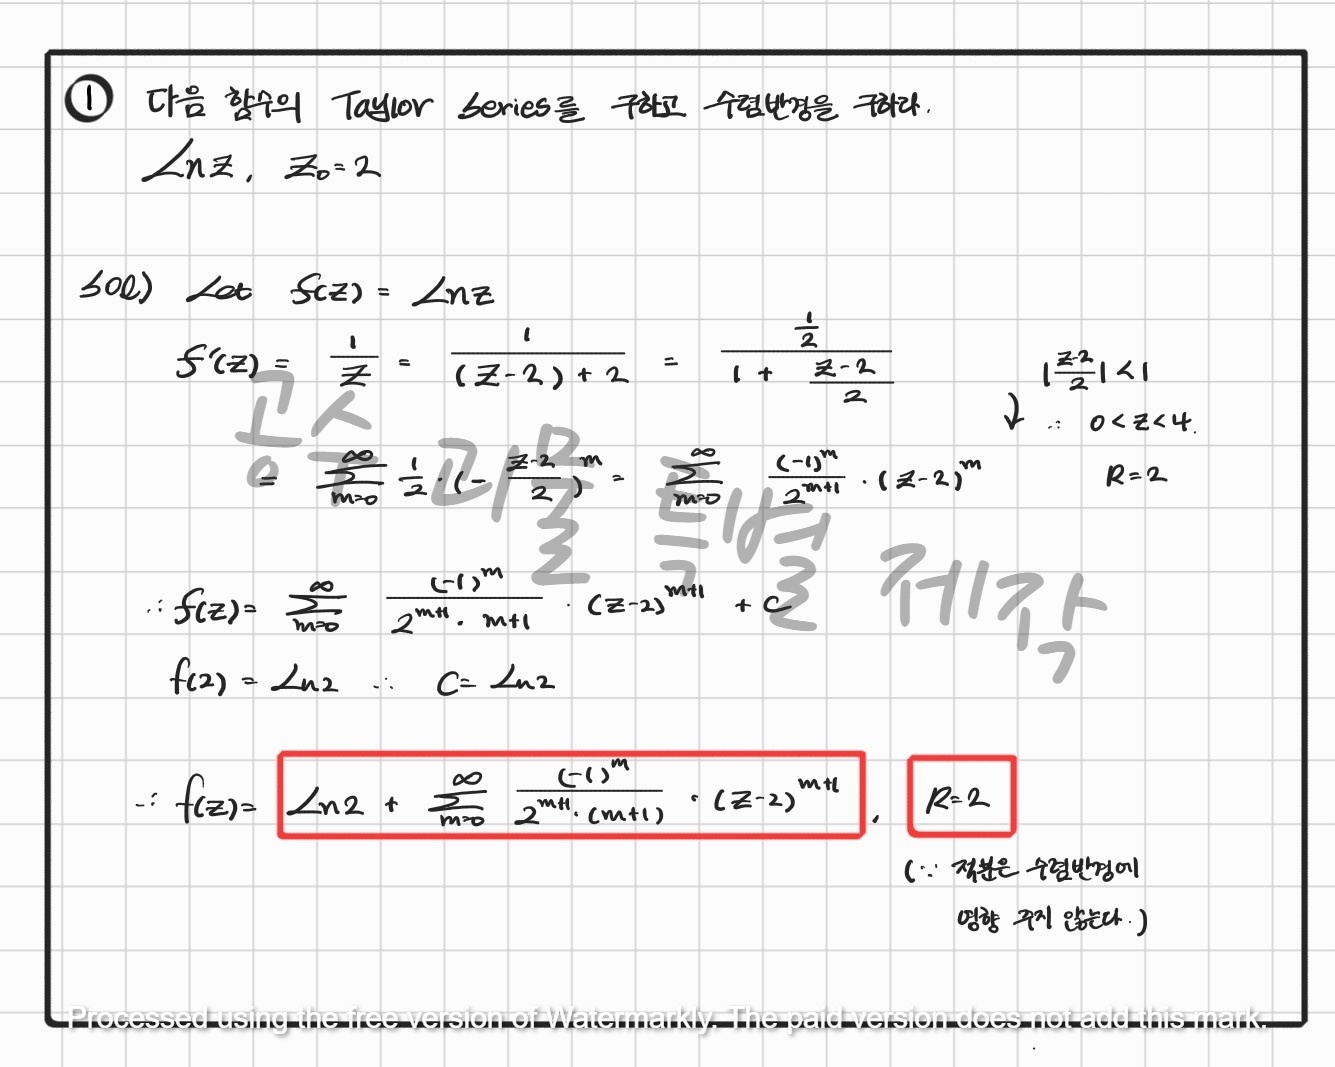 ① 다음 함수의 Taylor series를 구하고 수렴반경을 구하라.
Ln z, z₀=2
sol) Let f(z) = Ln z
f'(z) = 1/z = 1/((z-2)+2) = (1/2)/(1 + (z-2)/2)
|(z-2)/2|<1
∴ 0<z<4.
= ∑_{m=0}^{∞} 1/2 · (- (z-2)/2)^m = ∑_{m=0}^{∞} (-1)^m/2^{m+1} · (z-2)^m
R=2
∴ f(z)= ∑_{m=0}^{∞} (-1)^m/(2^{m+1} · m+1) · (z-2)^{m+1} + C
f(2) = Ln2 ∴ C= Ln2
∴ f(z)= Ln2 + ∑_{m=0}^{∞} (-1)^m/(2^{m+1}·(m+1)) · (z-2)^{m+1}, R=2
(∵ 적분은 수렴반경에
영향 주지 않는다.)
공수 과물 특별 제작
Processed using the free version of Watermarkly. The paid version does not add this mark.